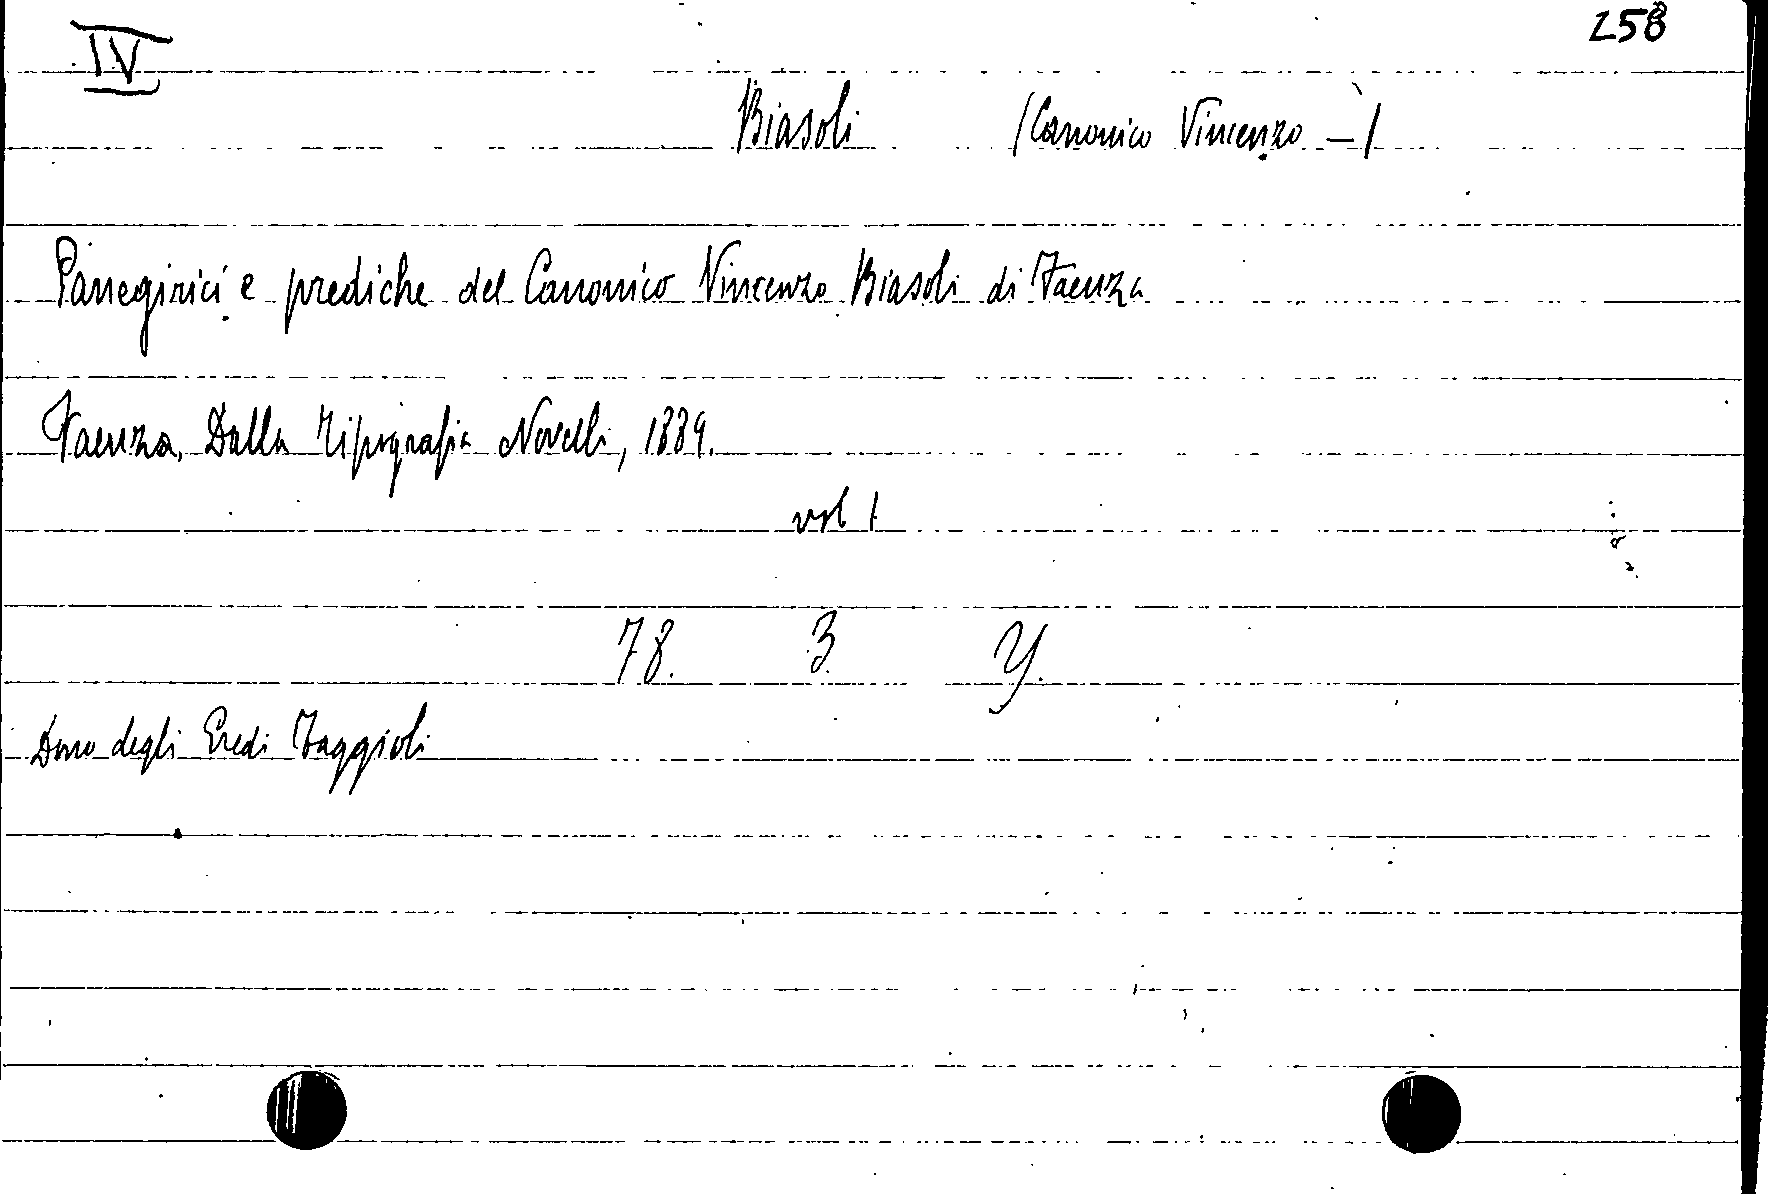 IV
258
Biasoli (Canonico Vincenzo -)
Panegirici e prediche del Canonico Vincenzo Biasoli di Faenza
Faenza, Dalla Tipografia Novelli, 1884.
vol 1
78. 3. Y.
Dono degli Eredi Zaggioli